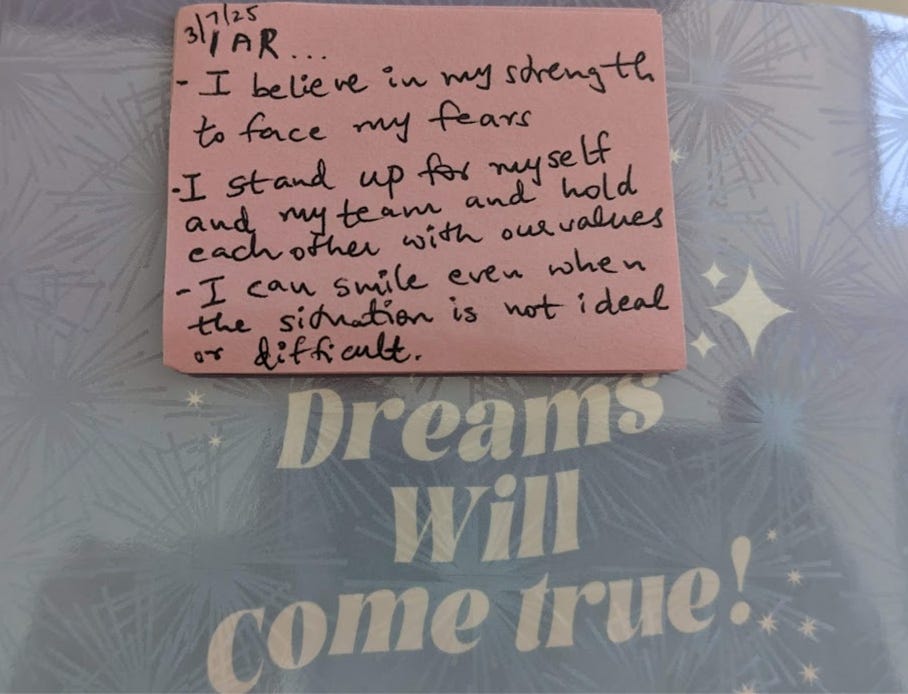 3/7/25
I AR...
- I believe in my strength
to face my fears
- I stand up for myself
and my team and hold
each other with our values
- I can smile even when
the situation is not ideal
or difficult.
Dreams
Will
Come true!